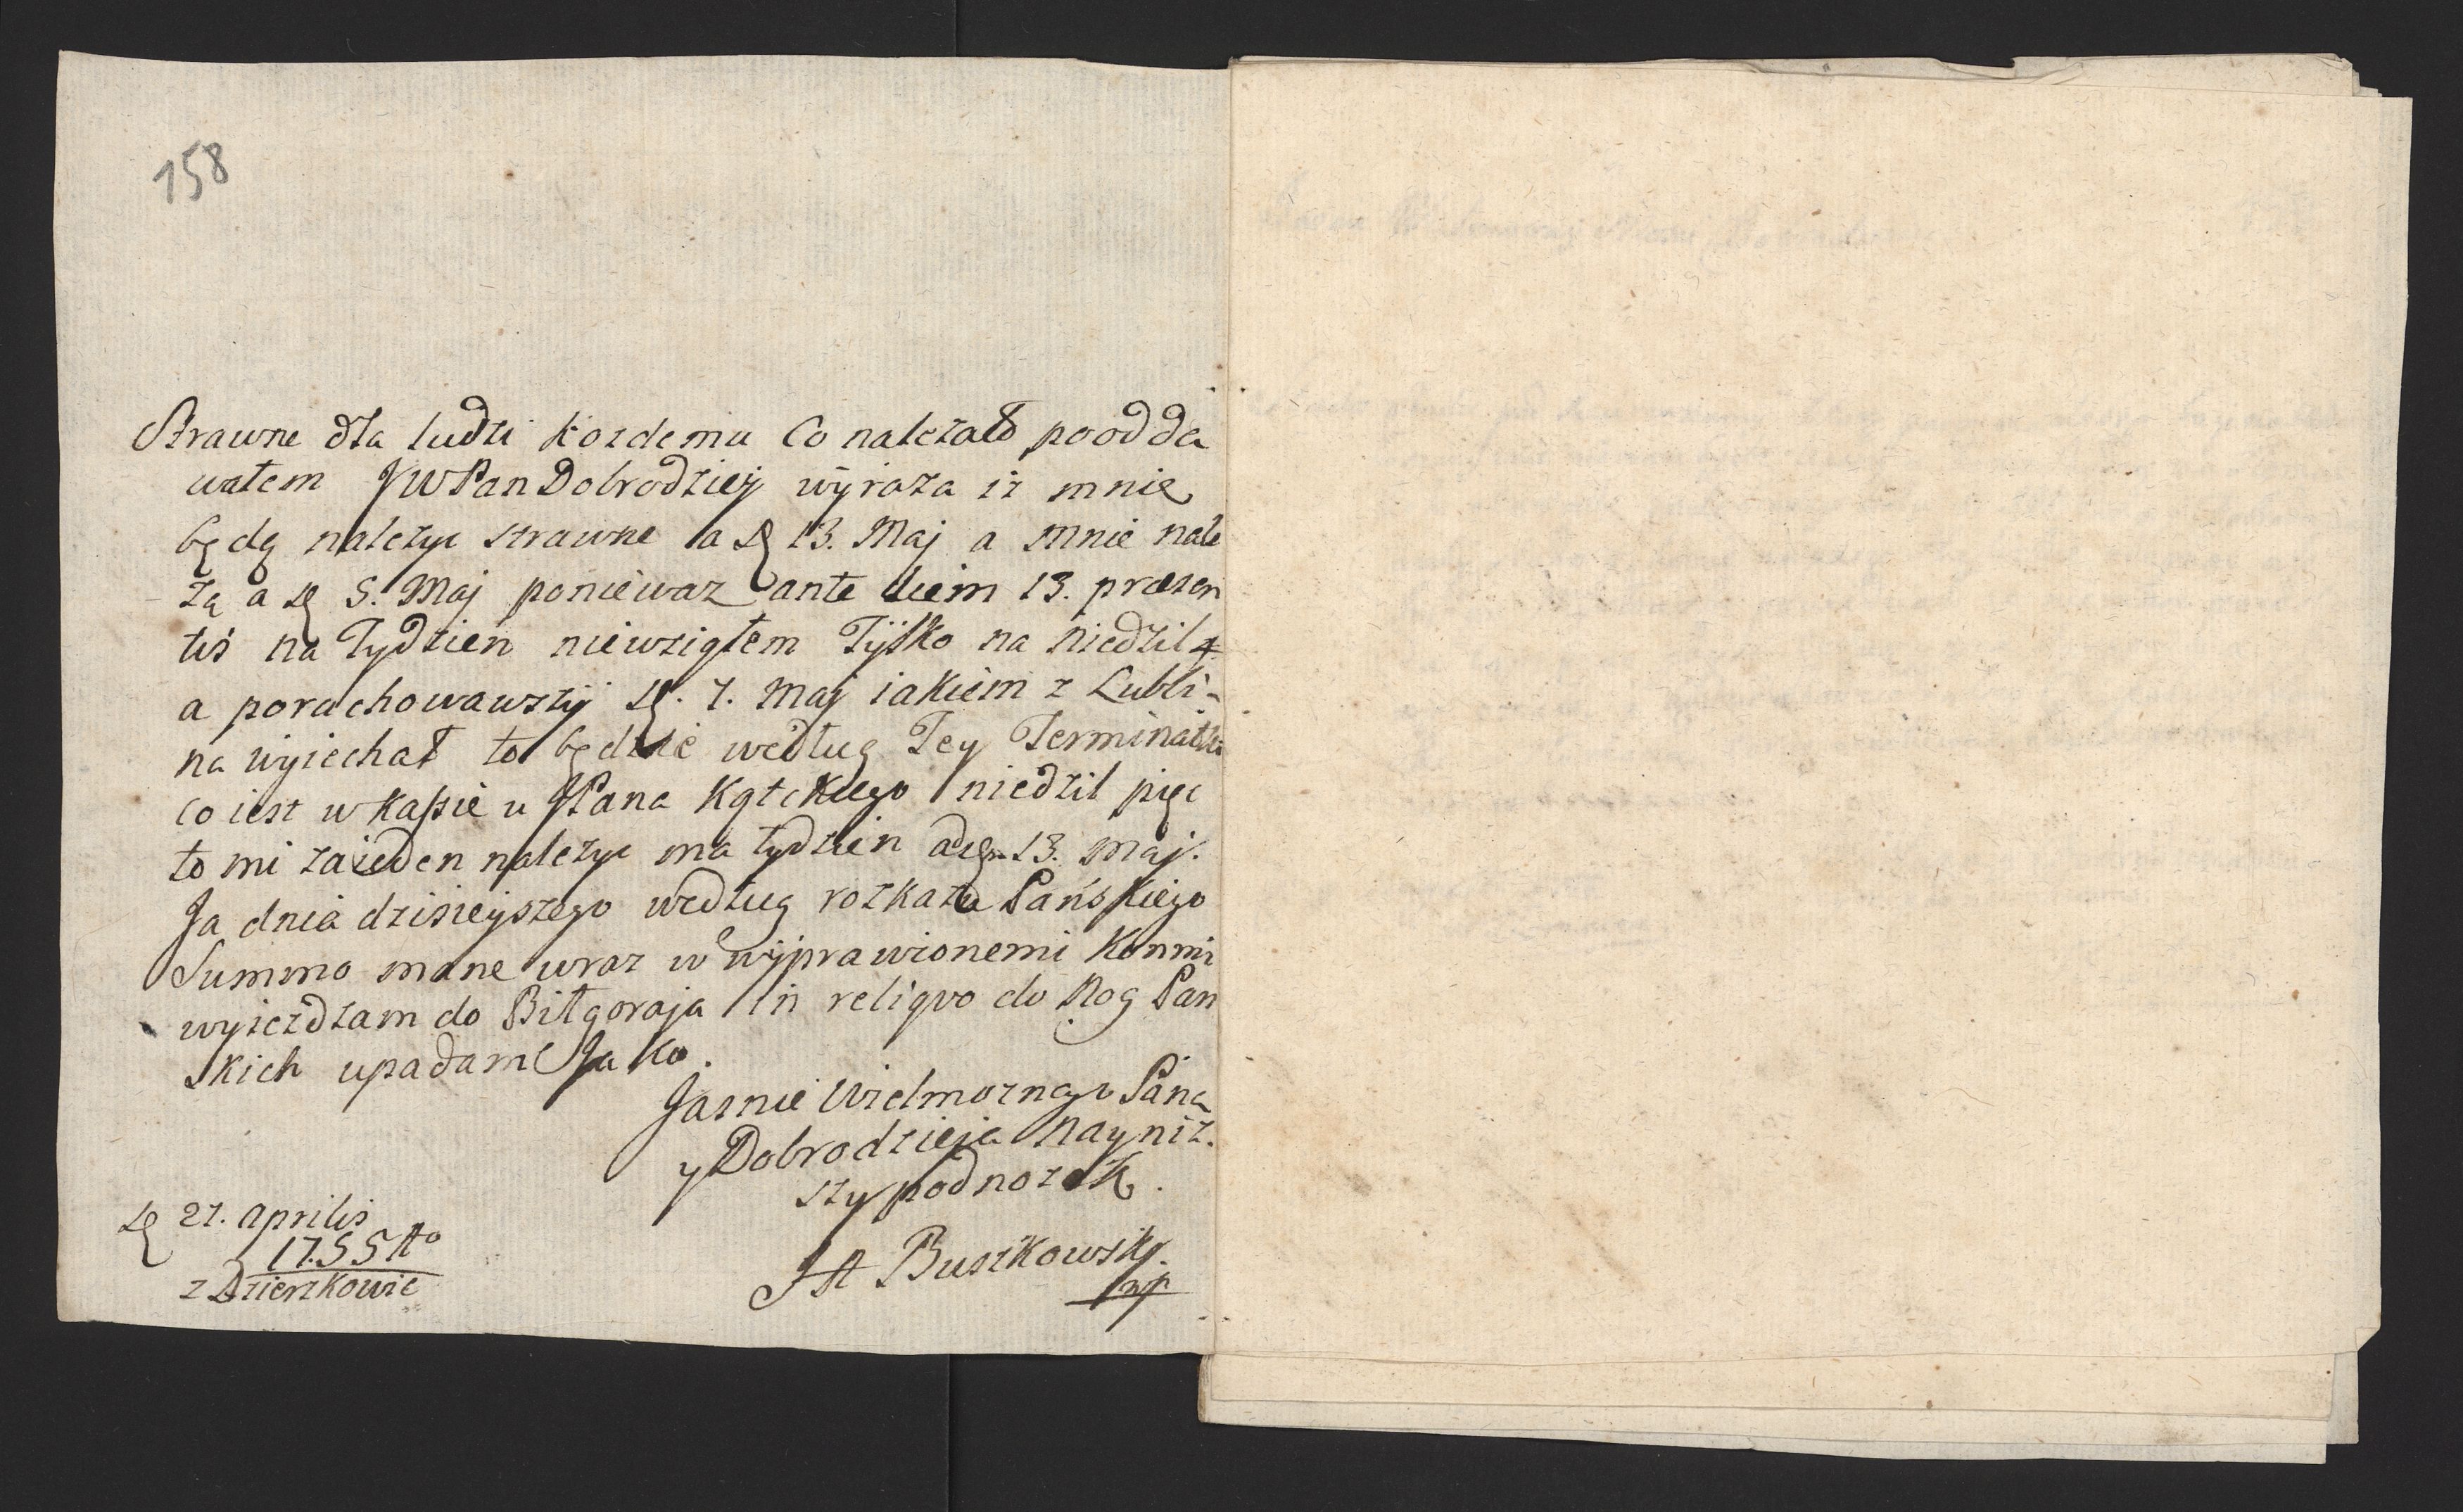 158
Strawne dla ludzi kozdemu Co nalezało poodda
wałem JWPan Dobrodziey wÿraza iz mnie
będą nalezyc strawne a d 13. Maj a mnie nale
zą a d 5. Maj poniewaz ante diem 13. præsen
tis na Tydzien niewziąłem Tÿlko na niedzil 4
a porachowawszÿ d. 7. Maj iakiem z Lubli-
na wyiechał to będzie według Tey Terminatki
co iest w kaßie u JPana Kątckiego niedzil pięc
to mi zaieden nalezyc ma tydzien a d 13. maj.
Ja dnia dzisieyszego według rozkazu Pańskiego
Summo mane wraz w wÿprawionemi Konmi
wyiezdzam do Biłgoraja in reliqvo do Nog Pan
skich upadam Jako.
Jasnie Wielmoznego Pana
y Dobrodzieja Nayniz.
szy podnozek.
d 27. Aprilis
17.55 Ao
z Dzierzkowic
JA Buszkowsky.
mp